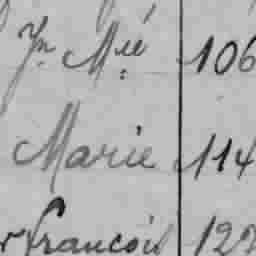 Jn Mié 106
Marie 114
françois 12